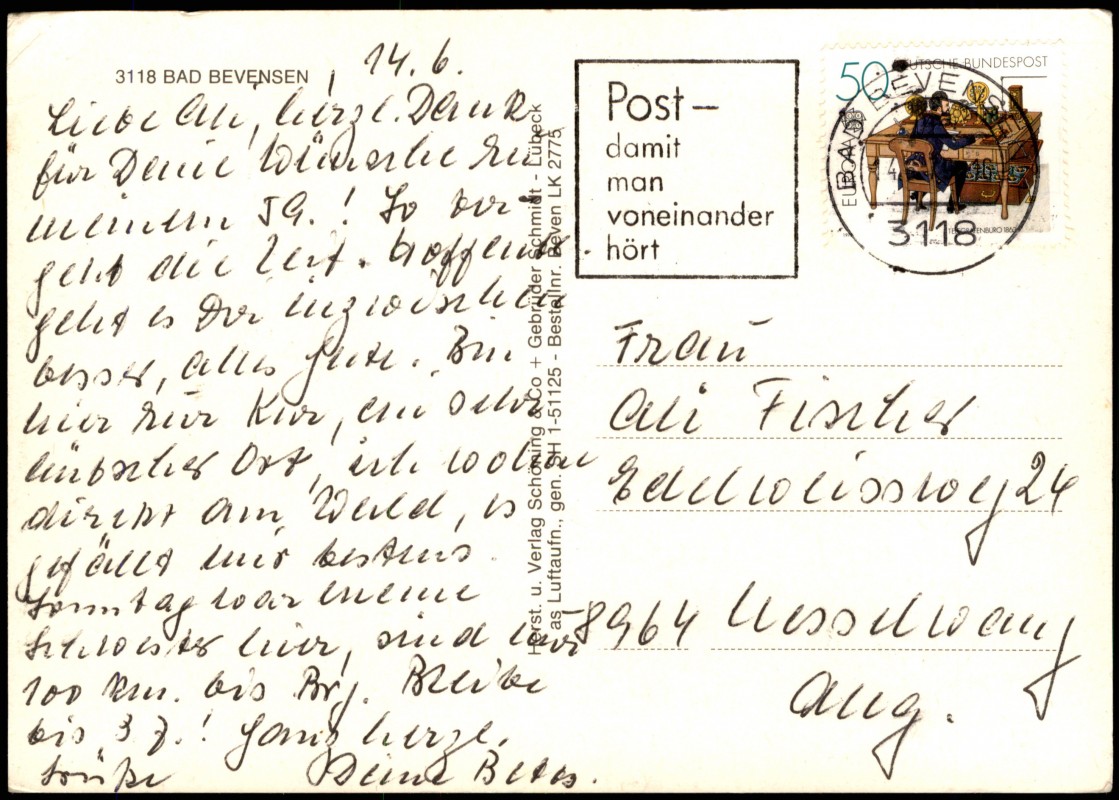 3118 BAD BEVENSEN
14.6.
Liebe Alli, herzl. Dank
für Deine Wünsche zu
meinem 
So ver-
geht die Zeit. Hoffentl.
geht es Dir inzwischen
besser, alles Gute. Bin
hier zur Kur, ein sehr
hübscher Ort, ich wohne
direkt am Wald, es
gefällt mir bestens.
Sonntag war meine
Schwester hier, sind nur
100 km. bis Brg. Bleibe
bis 3.7.! Ganz herzl.
Grüße Deine
Horst. u. Verlag Schöning & Co + Gebrüder Schmidt - Lübeck
as Luftaufn., gen. SH 1-51125 - Bestellnr. Beven LK 2775
Post –
damit
man
voneinander
hört
50 DEUTSCHE BUNDESPOST
EUROPA
BAD BEVENSEN
3118
Frau
Alli Fischer
Edelweissweg 24
8964 Nesselwang
Allg.